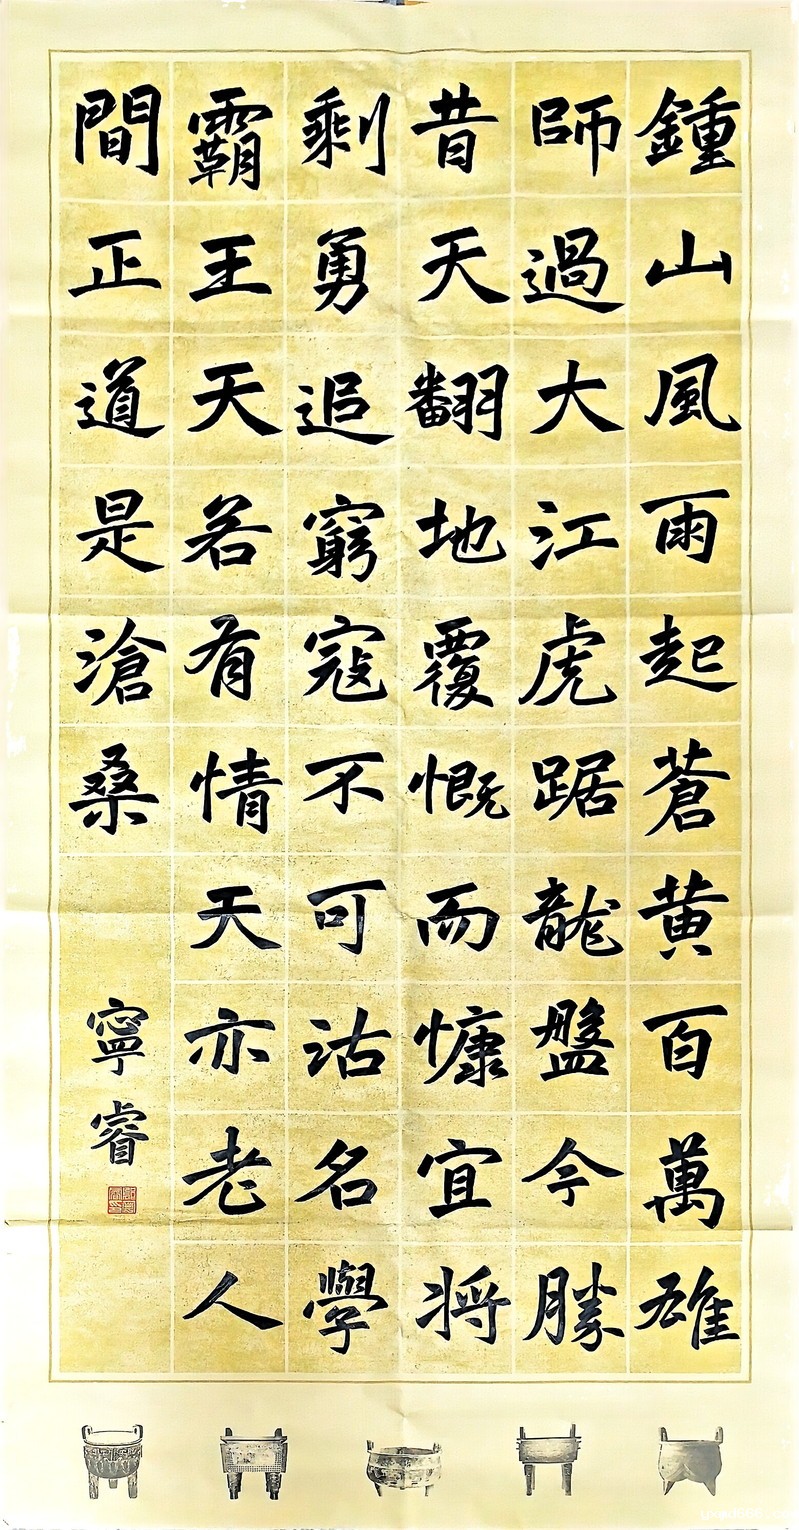 鍾山風雨起蒼黄百萬雄
師過大江虎踞龍盤今勝
昔天翻地覆慨而慷宜将
剩勇追窮寇不可沽名學
霸王天若有情天亦老人
間正道是滄桑
寧睿